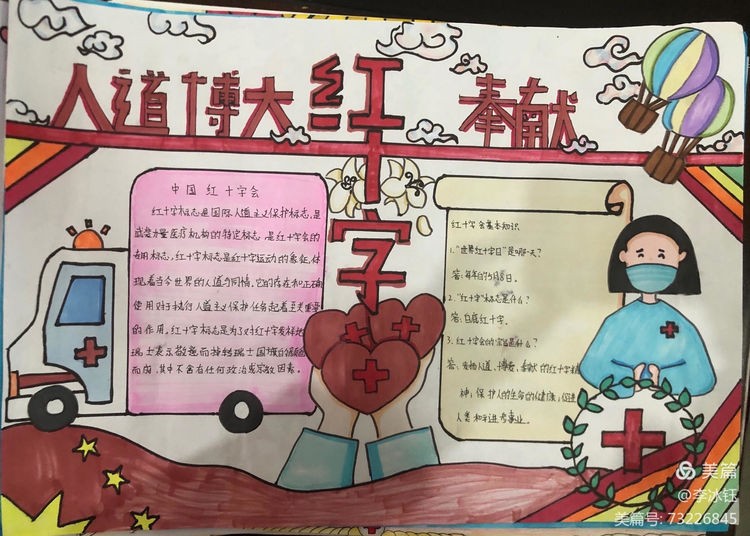 人道博大 红十字 奉献
中国 红十字会
红十字标志是国际人道主义保护标志,是
武装力量医疗机构的特定标志,是红十字会的
专用标志,红十字标志是红十字运动的象征,体
现着当今世界的人道与同情,它的存在和正确
使用对于执行人道主义保护任务起着至关重要
的作用,红十字标志是为了对红十字发祥地
瑞士表示敬意而掉转瑞士国旗的颜色
而成,其中不含有任何政治或宗教因素。
红十字会基本知识
1."世界红十字日"是哪一天?
答:每年的5月8日。
2."红十字"标志是什么?
答:白底红十字。
3.红十字会的宗旨是什么?
答:发扬人道、博爱、奉献的红十字精
神:保护人的生命的健康;促进
人类和平进步事业。
美篇
@李冰钰
美篇号: 73226845